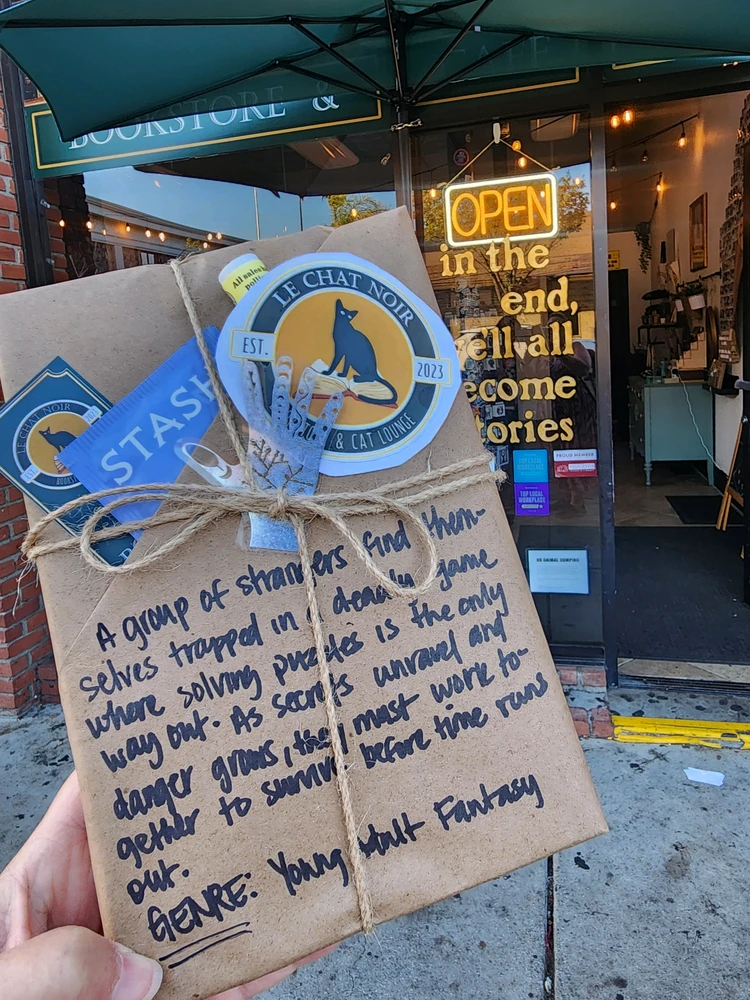 BOOKSTORE &
OPEN
in the
end,
e'll all
ecome
tories
PROUD MEMBER
TOP LOCAL
WORKPLACE
NO ANIMAL DUMPING
All sales
LE CHAT NOIR
EST.
2023
& CAT LOUNGE
LE CHAT NOIR
STASH
A group of strangers find them-
selves trapped in a deadly game
where solving puzzles is the only
way out. As secrets unravel and
danger grows, they must work to-
gether to survive before time runs
out.
GENRE: Young Adult Fantasy